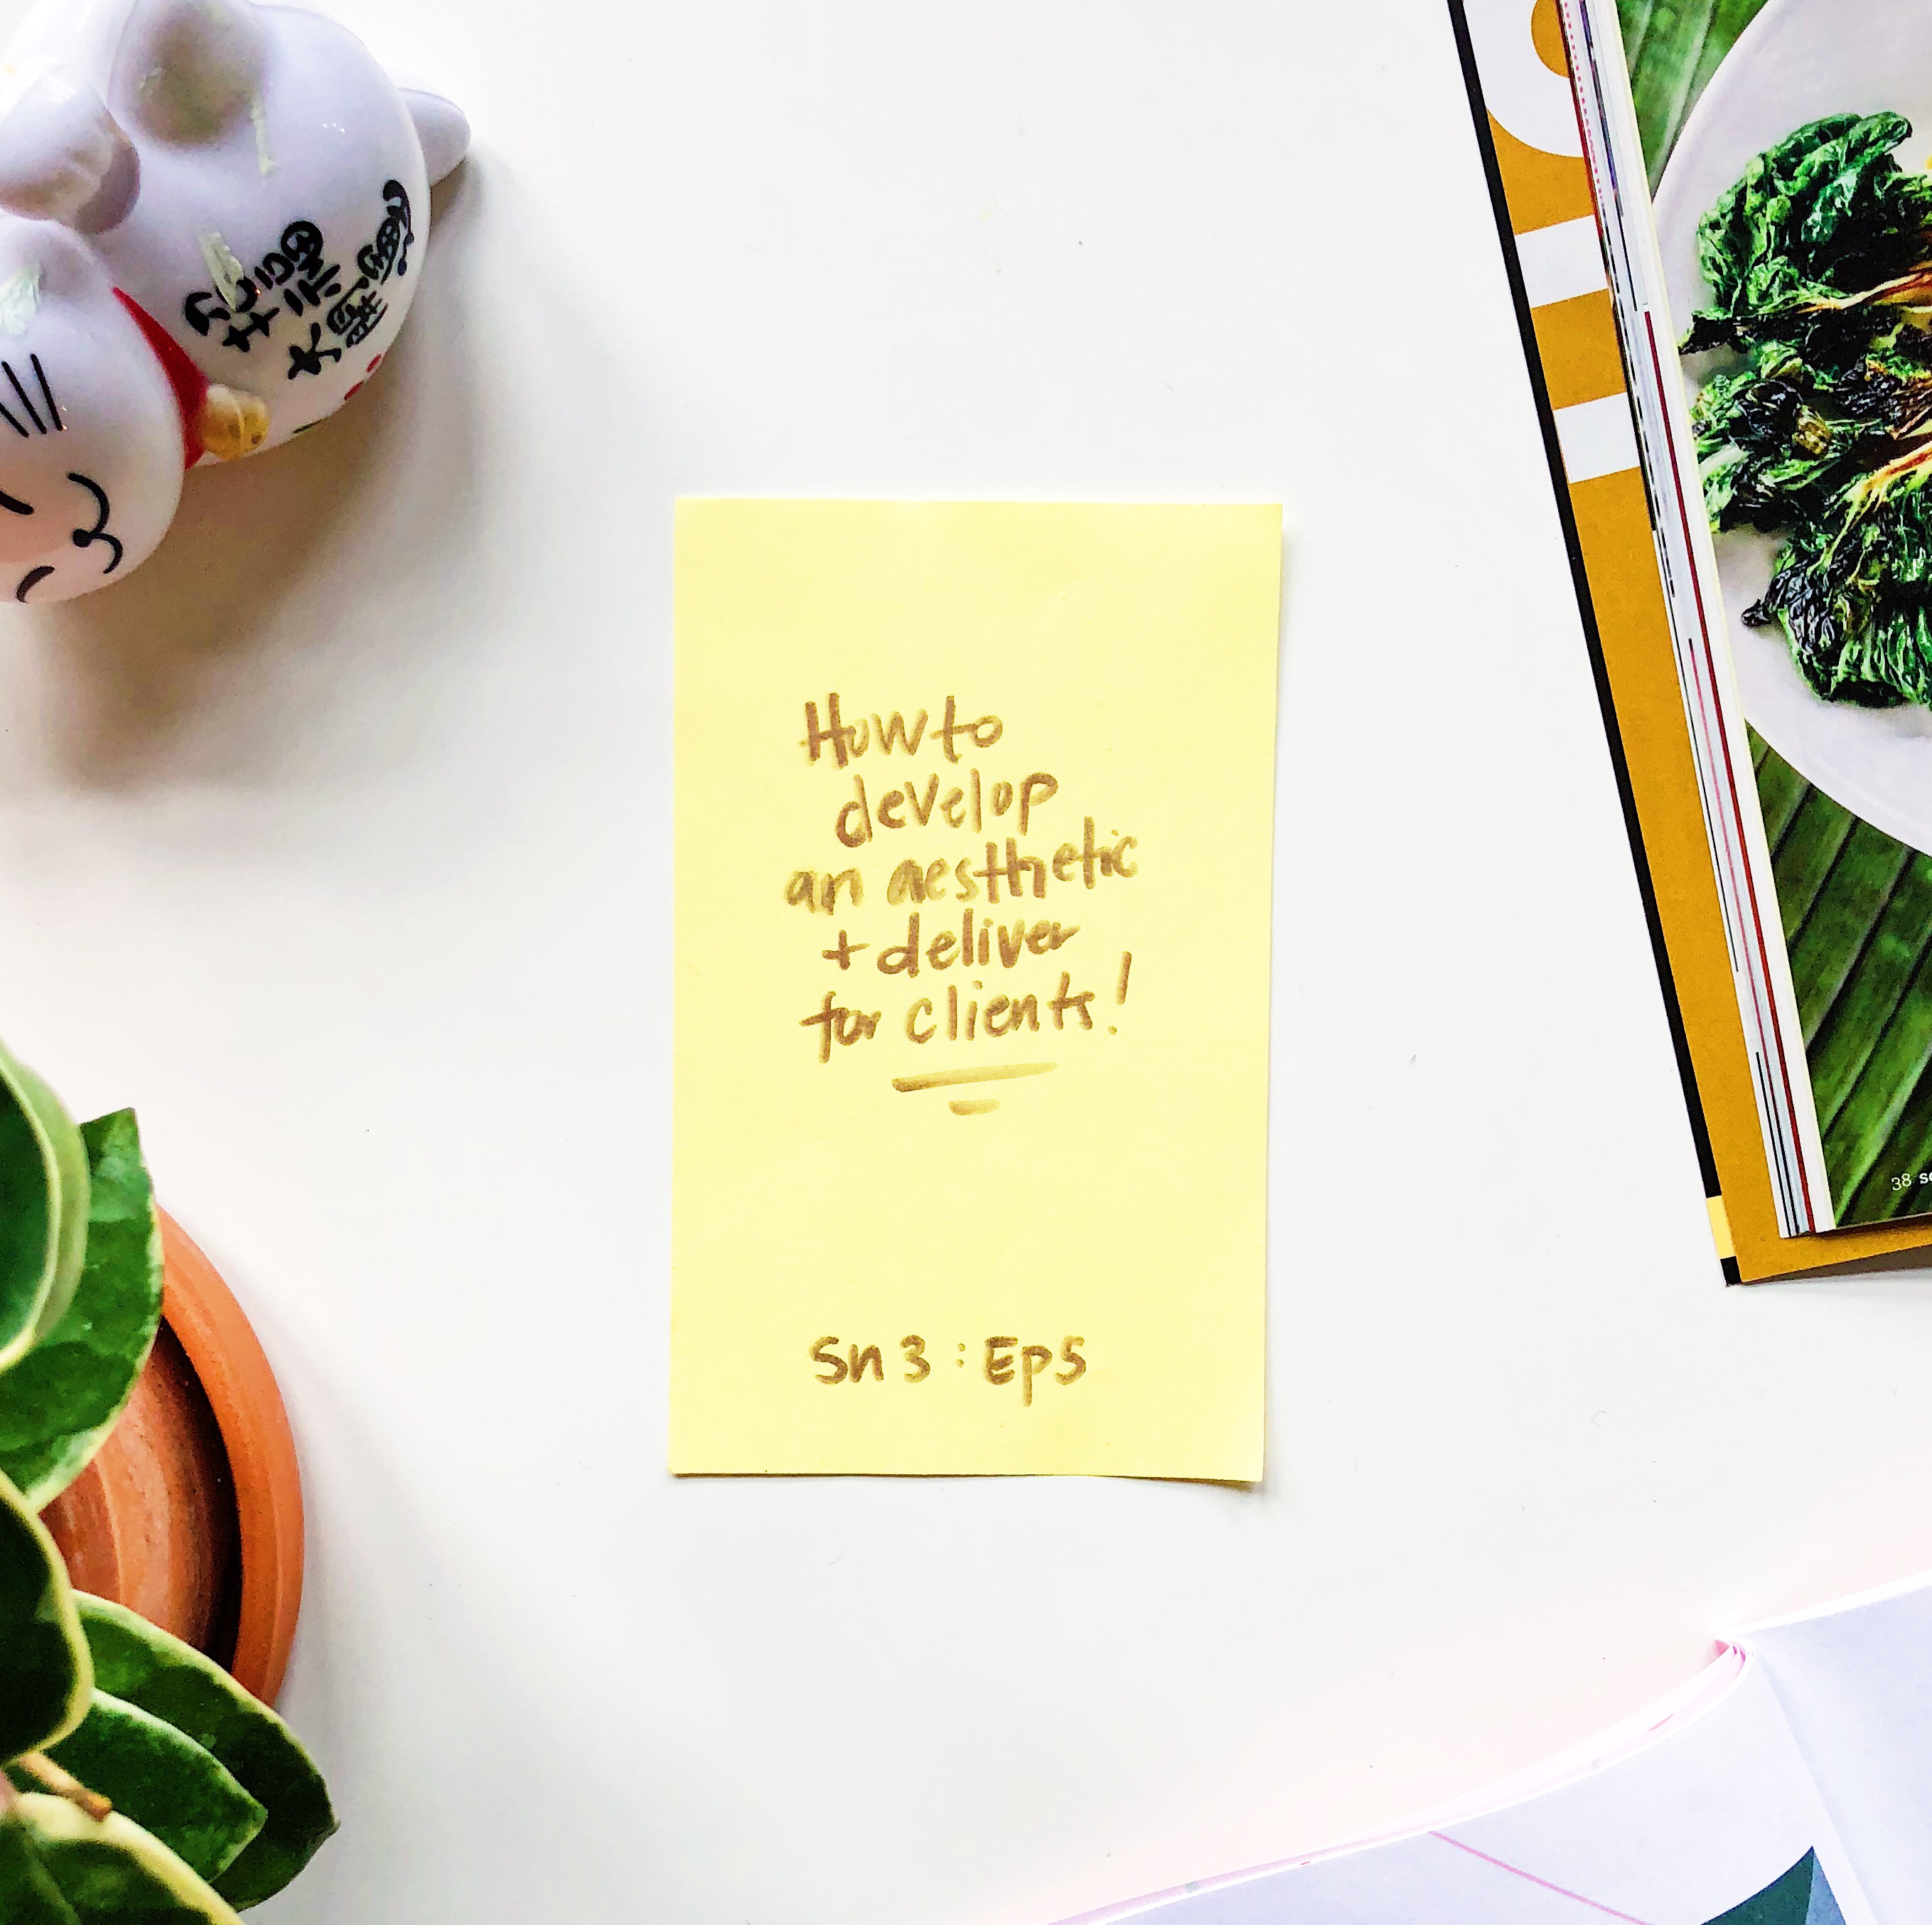 How to
develop
an aesthetic
+ deliver
for clients!
Sn 3 : Ep 5
38